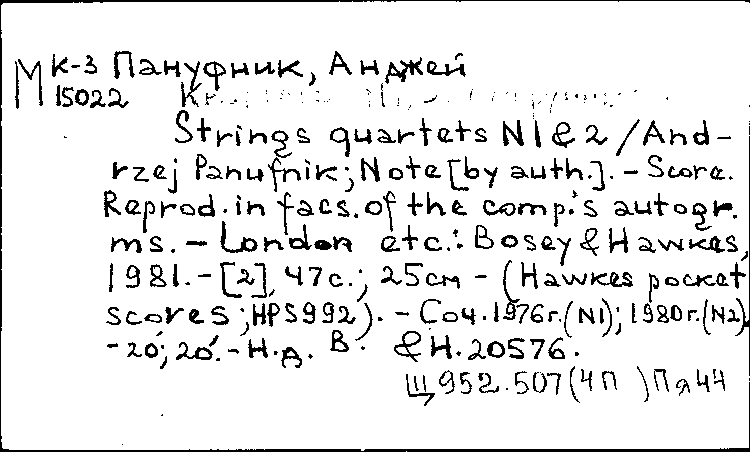 М к-3 Пануфник, Анджей
15022
Strings quartets N1&2/And-
rzej Panufnik; Note [by auth.]. - Score.
Reprod. in facs. of the comp.'s autogr.
ms. - London etc.: Bosey & Hawkes,
1981. - [2], 47с.; 25см - (Hawkes pocket
scores; HPS992). - Соч. 1976г. (N1); 1980г. (N2).
- 20'; 20'. - Н.д. B. & H. 20576.
Щ952.507(4П )Пя44